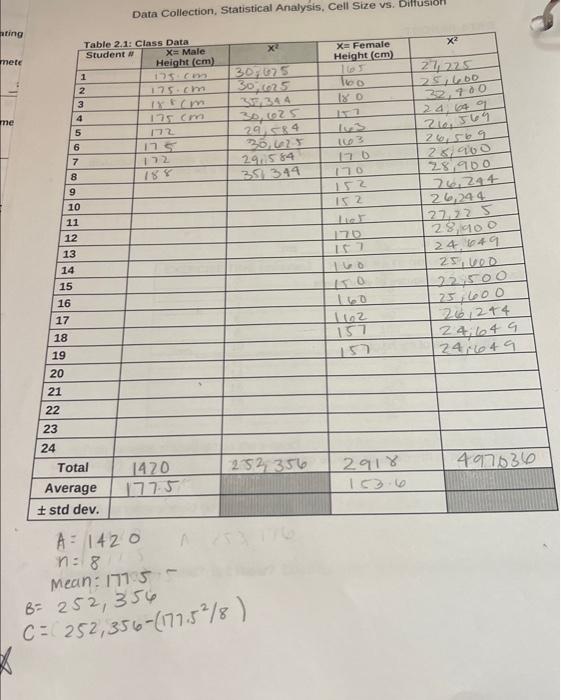 Data Collection, Statistical Analysis, Cell Size vs. Diffusion
ating
mete
me
Table 2.1: Class Data
Student # X= Male Height (cm) X² X= Female Height (cm) X²
1 175. cm 30,625 165 27,225
2 175. cm 30,625 160 25,600
3 188 cm 35,344 180 32,400
4 175 cm 30,625 157 24,649
5 172 29,584 163 26,569
6 175 30,625 163 26,569
7 172 29,584 170 28,900
8 188 35,344 170 28,900
9 152 26,244
10 152 26,244
11 165 27,225
12 170 28,900
13 157 24,649
14 160 25,600
15 150 22,500
16 160 25,600
17 162 26,244
18 157 24,649
19 157 24,649
20
21
22
23
24
Total 1420 252,356 2918 497036
Average 177.5 153.6
± std dev.
A = 1420
n = 8
Mean: 177.5 -
B= 252,356
C= 252,356-(177.5²/8)